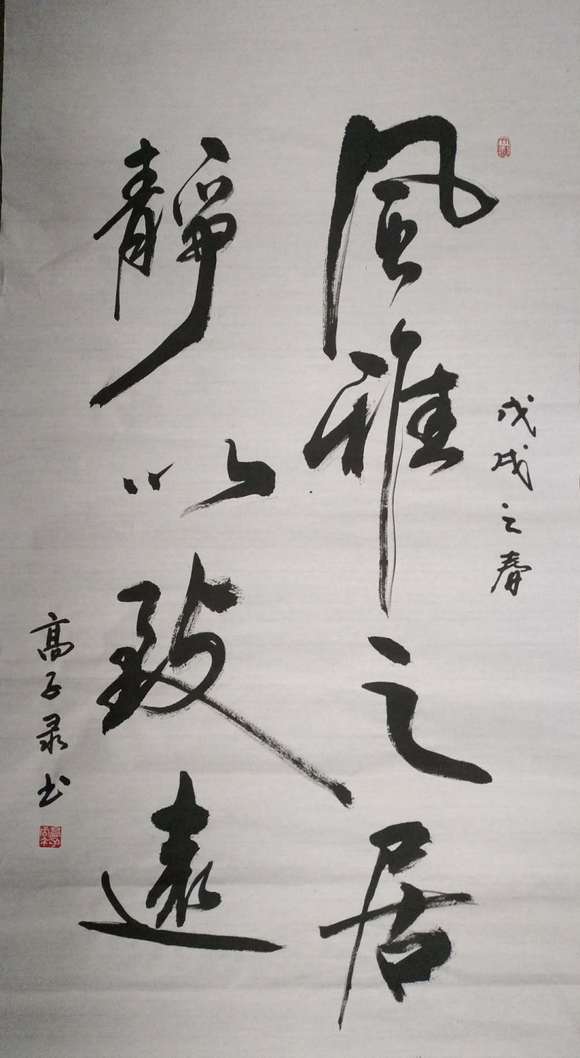 戊戌之春
風雅之居
靜以致遠
高子录书